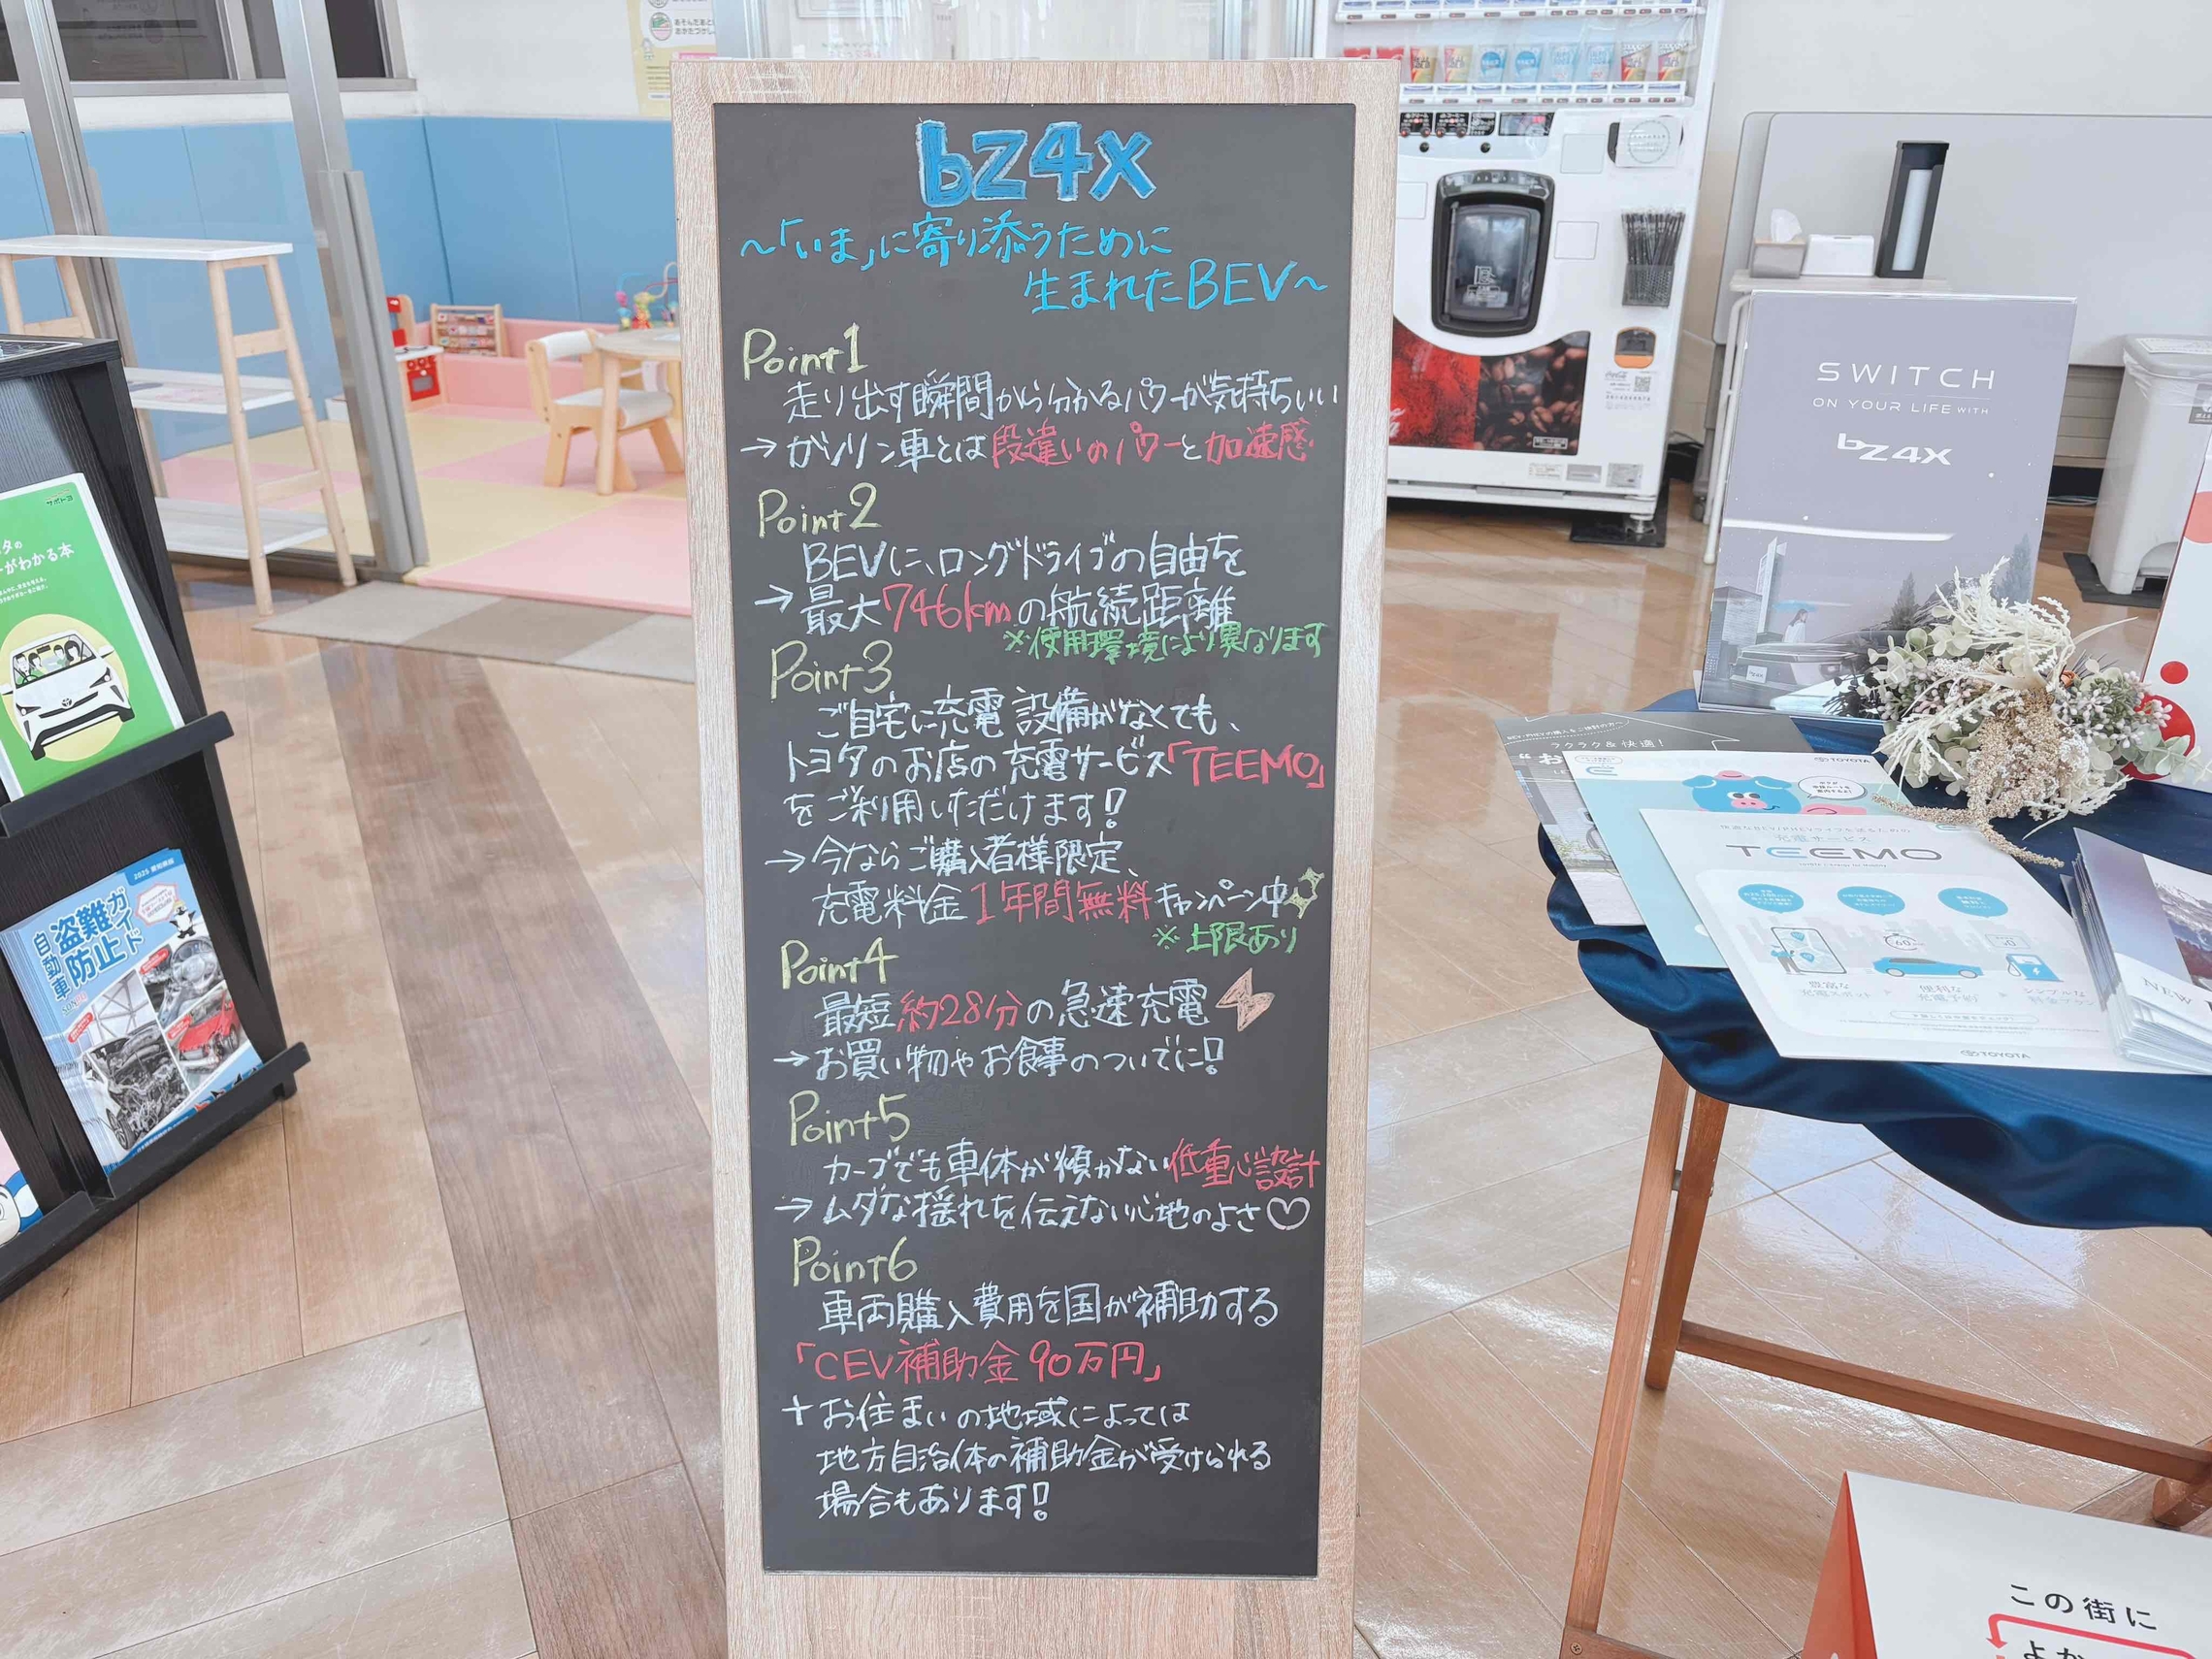 bZ4X
～「いま」に寄り添うために
生まれたBEV～
Point1
走り出す瞬間から分かるパワーが気持ちいい
→ガソリン車とは段違いのパワーと加速感
Point2
BEVに、ロングドライブの自由を
→最大746kmの航続距離
※使用環境により異なります
Point3
ご自宅に充電設備がなくても、
トヨタのお店の充電サービス「TEEMO」
をご利用いただけます!
→今ならご購入者様限定、
充電料金1年間無料キャンペーン中
※上限あり
Point4
最短約28分の急速充電
→お買い物やお食事のついでに!
Point5
カーブでも車体が傾かない低重心設計
→ムダな揺れを伝えない心地のよさ♡
Point6
車両購入費用を国が補助する
「CEV補助金90万円」
+お住まいの地域によっては
地方自治体の補助金が受けられる
場合もあります!
SWITCH
ON YOUR LIFE WITH
bZ4X
ラクラク&快適!
TOYOTA
充電サービス
TEEMO
TOYOTA
NEW
この街に
がわかる本
2025 愛知県版
自動車
盗難
防止
ガイド